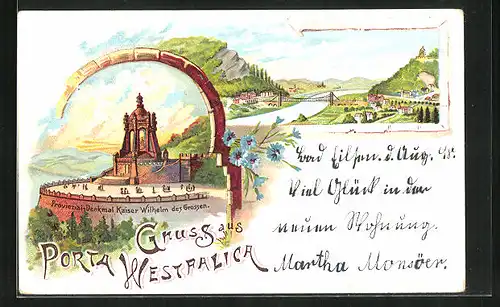 Provinzial-Denkmal Kaiser Wilhelm des Grossen.
Gruss aus
Porta
Westfalica
Bad Eilsen. d. Aug.
Viel Glück in der
neuen Wohnung.
Martha